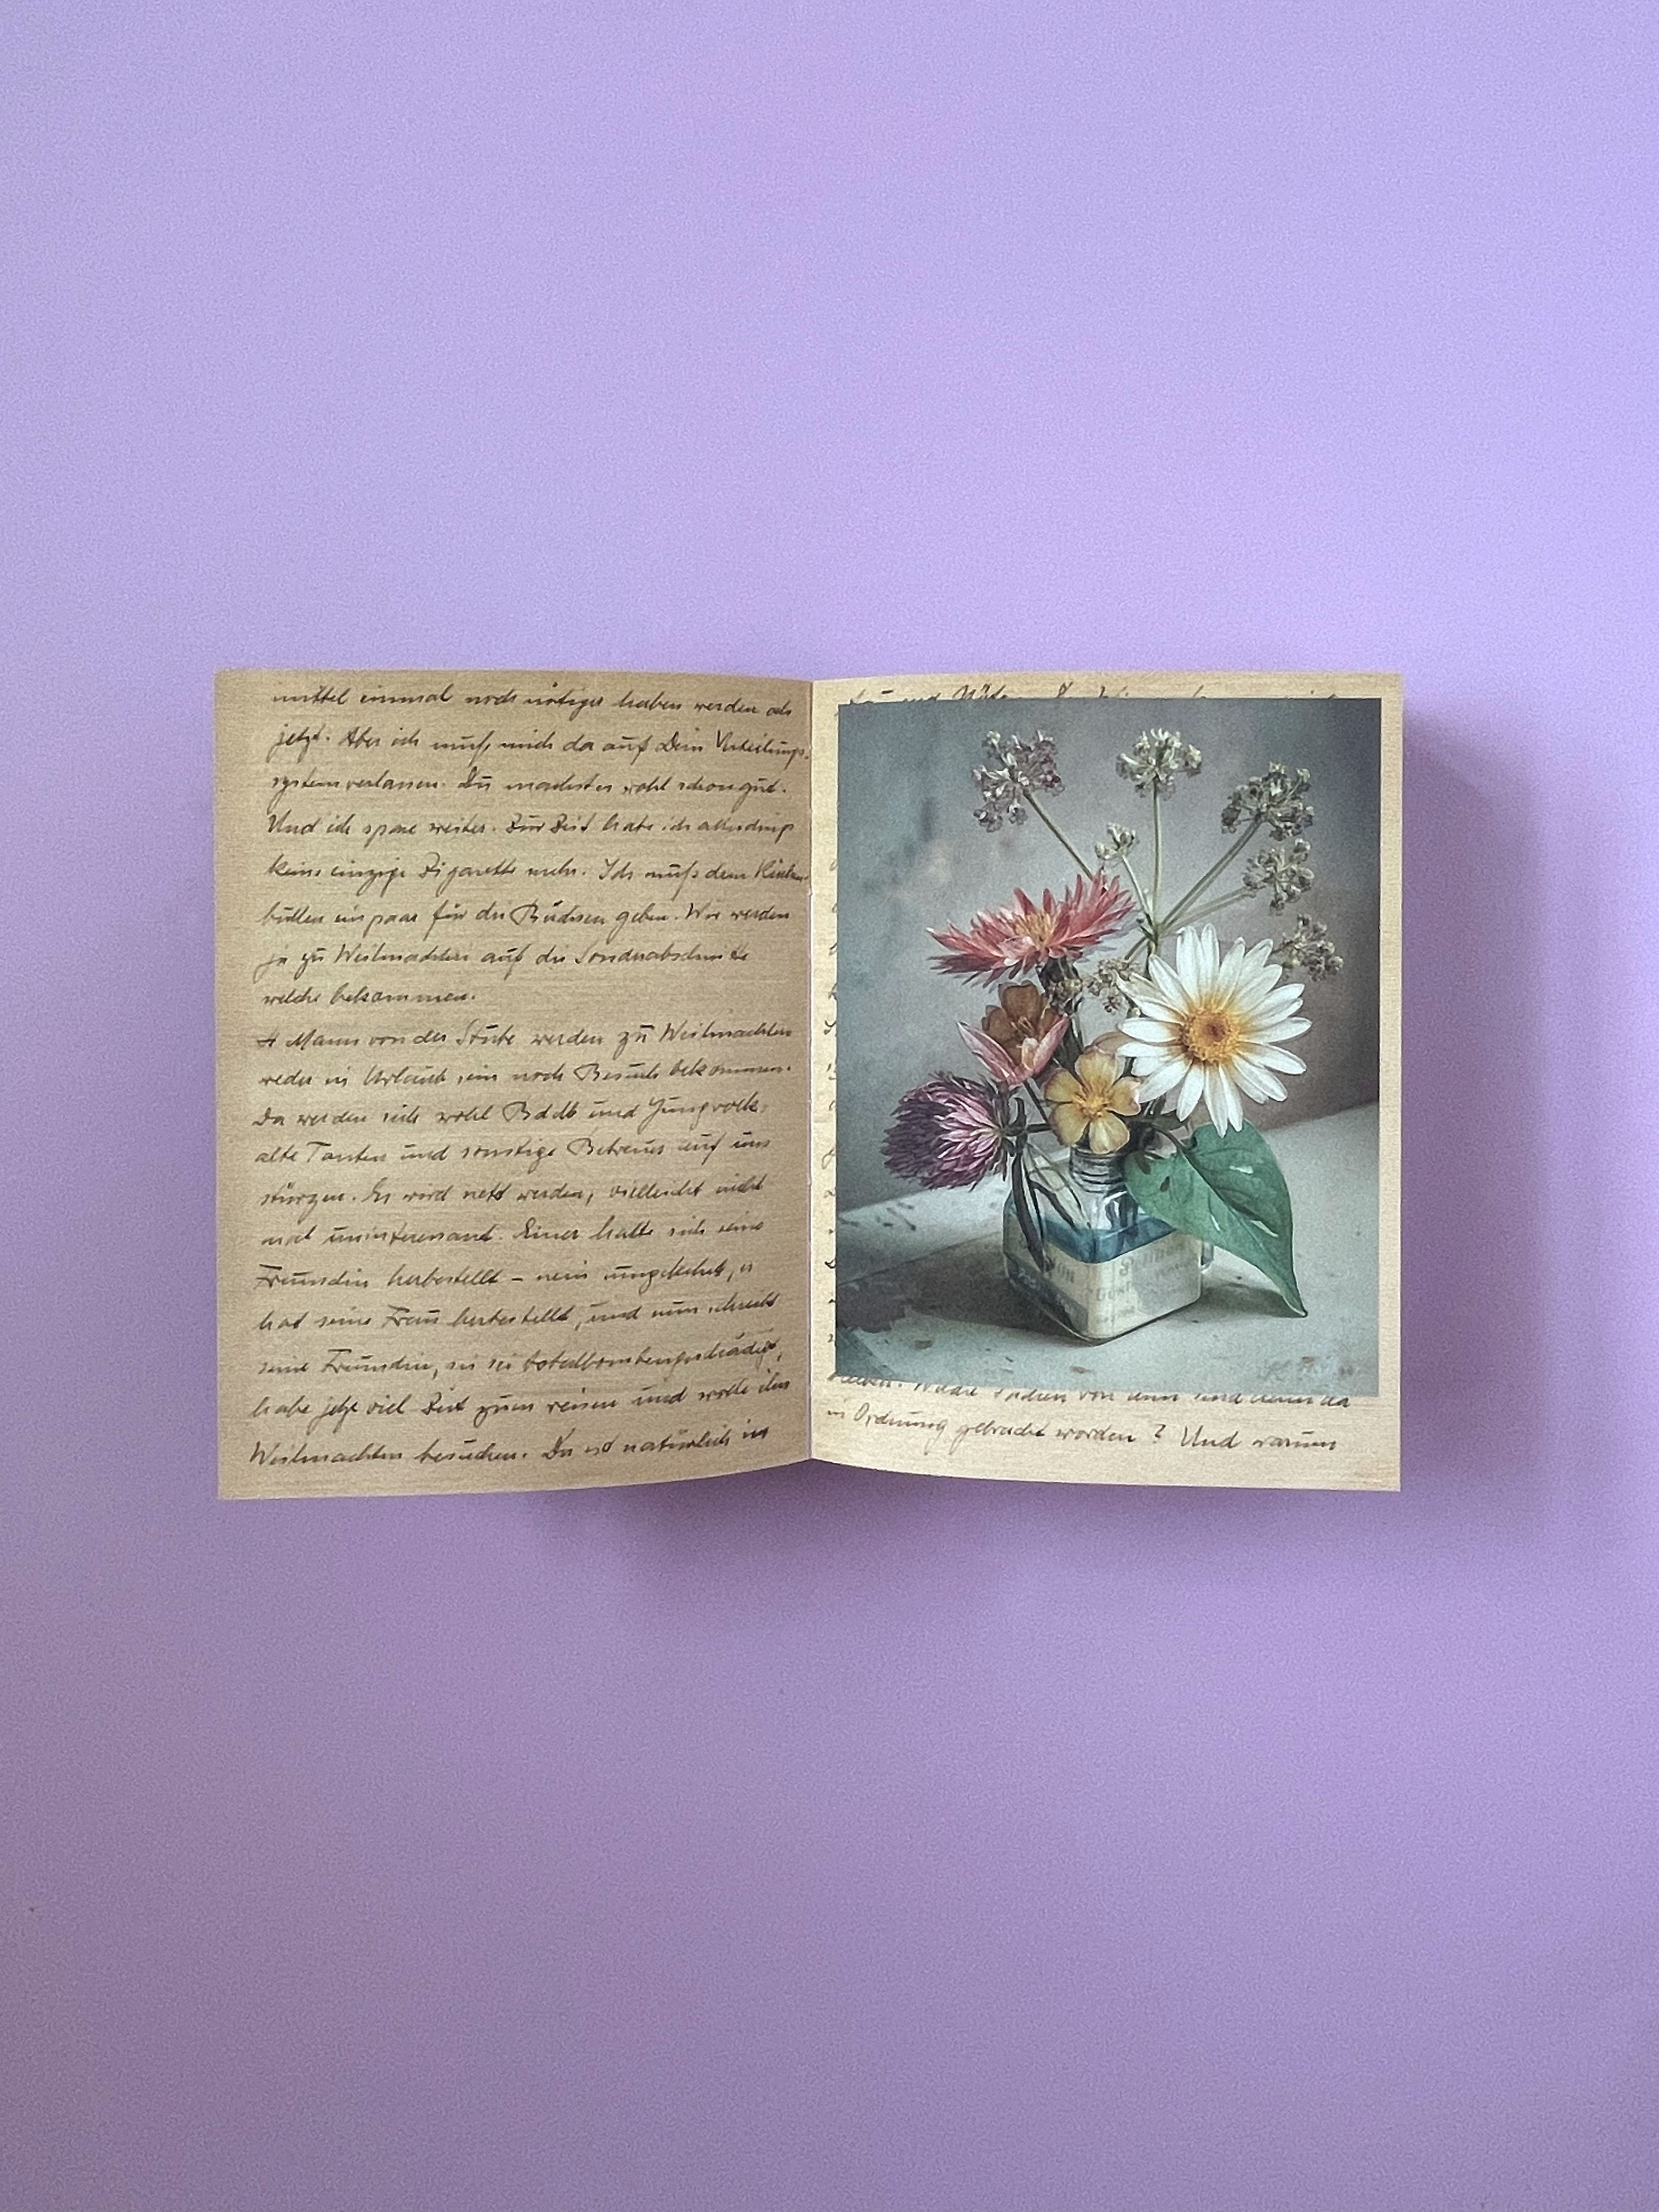 mittel einmal noch nötiger haben werden als
jetzt. Aber ich muß mich da auf Dein Verteilungs-
system verlassen. Du machst es wohl schon gut.
Und ich spare weiter. Zur Zeit habe ich allerdings
keine einzige Zigarette mehr. Ich muß dem
ein paar für die Büchsen geben. Wir werden
ja zu Weihnachten auf die Sonderabschnitte
welche bekommen.
4 Mann von der Stube werden zu Weihnachten
weder in Urlaub sein noch Besuch bekommen.
Da werden sich wohl BdM und Jungvolk,
alte Tanten und sonstige Betreuer auf uns
stürzen. Es wird nett werden, vielleicht nicht
mal uninteressant. Einer hatte sich seine
Freundin herbestellt – nein umgekehrt, er
hat seine Frau herbestellt, und nun schreibt
seine Freundin, sie sei totalbombengeschädigt,
habe jetzt viel Zeit zum reisen und wolle ihn
Weihnachten besuchen. Da ist natürlich
und
von
in Ordnung gebracht worden? Und warum